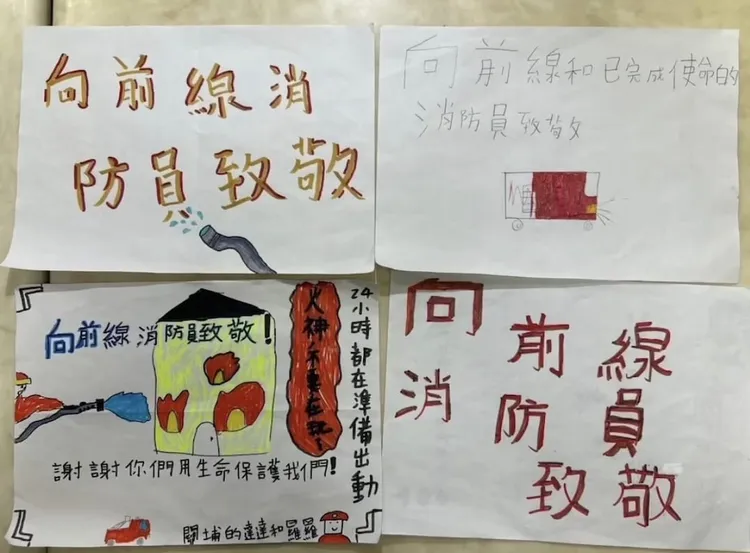 向前線消
防員致敬
向前線和已完成使命的
消防員致敬
向前線消防員致敬!
火神不要在玩了
24小時都在準備出動
謝謝你們用生命保護我們!
関埔的達達和羅羅
向前線
消防員
致敬